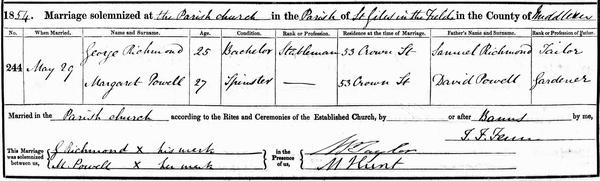 1854. Marriage solemnized at the Parish church in the Parish of St Giles in the Fields in the County of Middlesex
No. When Married. Name and Surname. Age. Condition. Rank or Profession. Residence at the time of Marriage. Father's Name and Surname. Rank or Profession of Father.
244 May 29 George Richmond 25 Bachelor Stableman 53 Crown St Samuel Richmond Tailor
Margaret Powell 27 Spinster — 53 Crown St David Powell Gardener
Married in the Parish church according to the Rites and Ceremonies of the Established Church, by or after Banns by me,
This Marriage was solemnized between us, G Richmond X his mark
M. Powell X her mark
in the Presence of us, Taylor
M Hunt